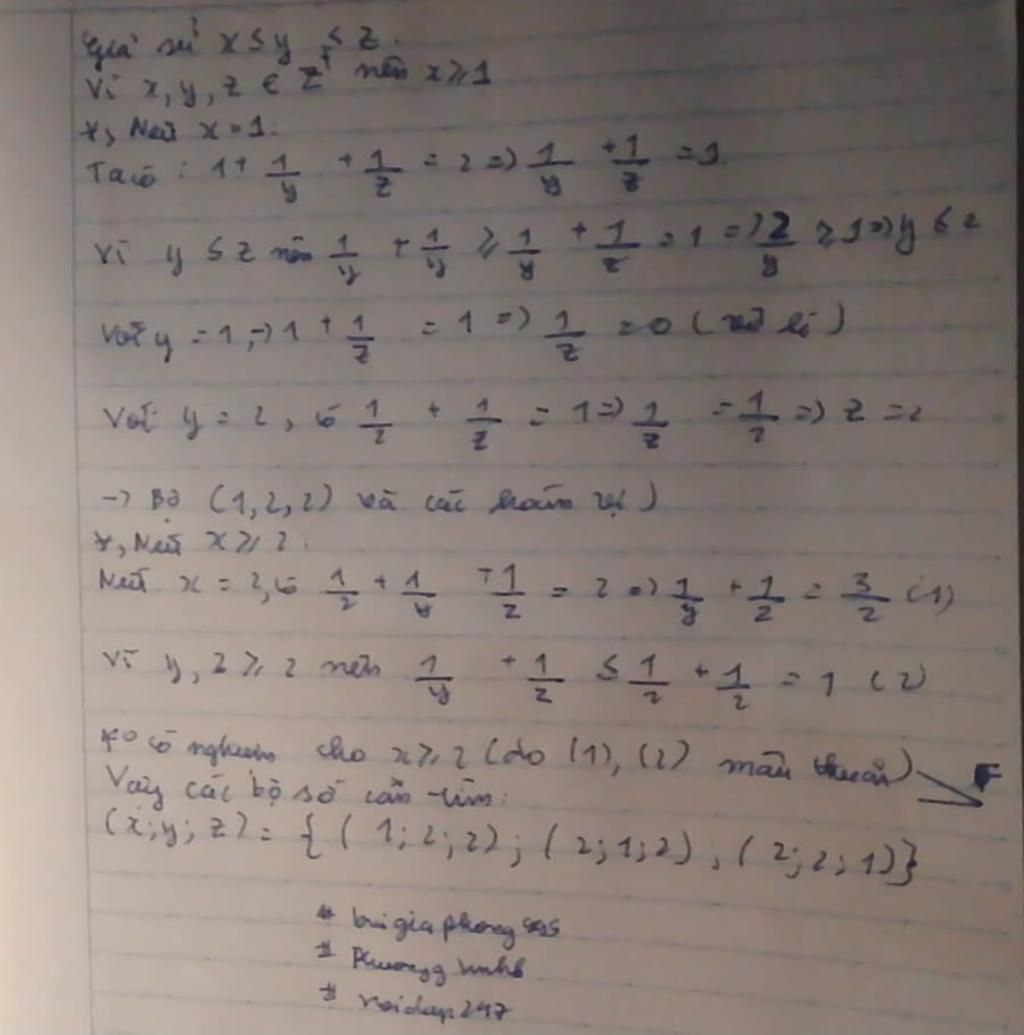 Giả sử x ≤ y ≤ z.
Vì x, y, z ∈ Z⁺ nên x ≥ 1
*, Nếu x = 1.
Ta có : 1 + 1/y + 1/z = 2 => 1/y + 1/z = 1.
Vì y ≤ z nên 1/y + 1/y ≥ 1/y + 1/z = 1 => 2/y ≥ 1 => y ≤ 2
Với y = 1, -> 1 + 1/z = 1 => 1/z = 0 (vô lí)
Với y = 2, có 1/2 + 1/z = 1 => 1/z = 1/2 => z = 2
-> Bộ (1, 2, 2) và các hoán vị)
*, Nếu x ≥ 2 :
Nếu x = 2, có 1/2 + 1/y + 1/z = 2 => 1/y + 1/z = 3/2 (1)
Vì y, z ≥ 2 nên 1/y + 1/z ≤ 1/2 + 1/2 = 1 (2)
K° có nghiệm cho x ≥ 2 (do (1), (2) mâu thuẫn)
Vậy các bộ số cần tìm:
(x; y; z) = { (1; 2; 2) ; (2; 1; 2) ; (2; 2; 1)}
# buigiaphong
#
# hoidap247